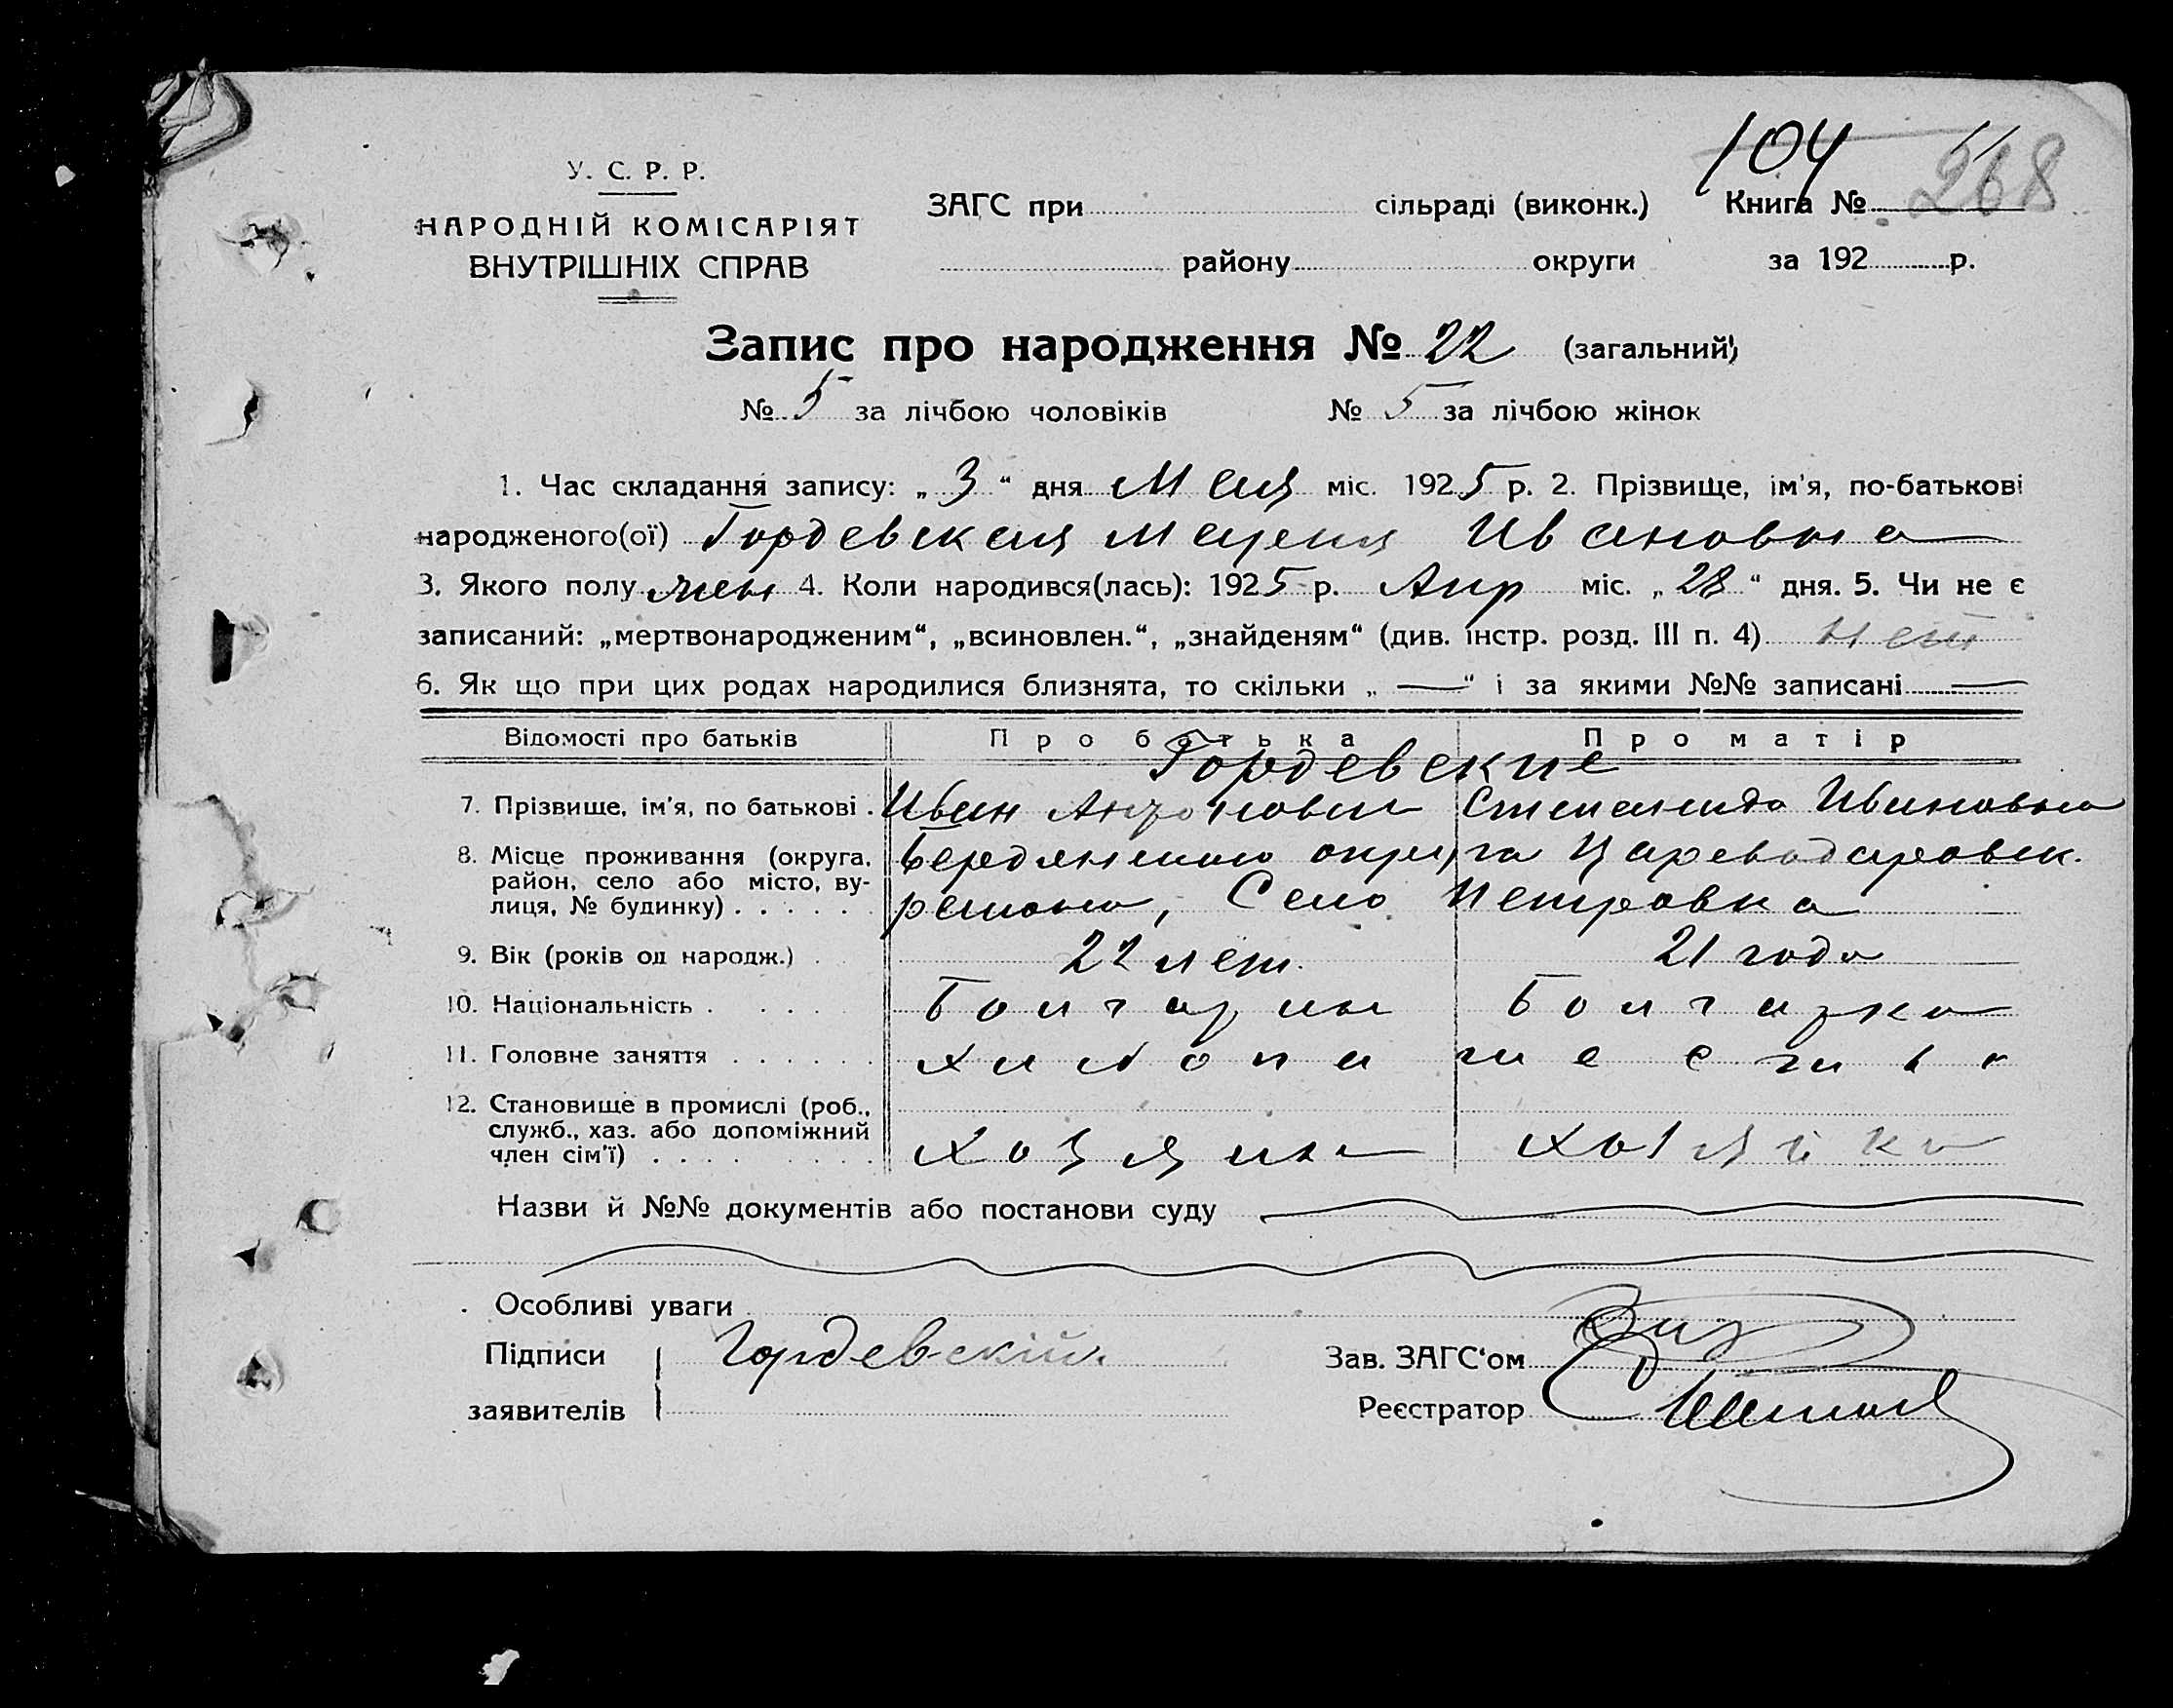 104
268
У. С. Р. Р.
НАРОДНІЙ КОМІСАРІЯТ
ВНУТРІШНІХ СПРАВ
ЗАГС при сільраді (виконк.) Книга №
району округи за 192 р.
Запис про народження № 22 (загальний)
№ 5 за лічбою чоловіків № 5 за лічбою жінок
1. Час складання запису: „3“ дня Мая міс. 1925 р. 2. Прізвище, ім'я, по-батькові
народженого(ої) Гордевская Мария Ивановна
3. Якого полу жен 4. Коли народився(лась): 1925 р. Апр міс. „28“ дня. 5. Чи не є
записаний: „мертвонародженим“, „всиновлен.“, „знайденям“ (див. інстр. розд. III п. 4) нет
6. Як що при цих родах народилися близнята, то скільки „—“ і за якими №№ записані —
Відомості про батьків Про батька Про матір
Гордевские
7. Прізвище, ім'я, по батькові . Иван Степанида Ивановна
8. Місце проживання (округа, район, село або місто, вулиця, № будинку) . . . . . Бердянскаго округа Цареводаровск.
района, Село Петровка
9. Вік (років од народж.) . 22 лет. 21 года
10. Національність . . . . . Болгарин Болгарка
11. Головне заняття . . . . . . хлебопашество
12. Становище в промислі (роб., служб., хаз. або допоміжний член сім'ї) . . . . . . . . Хозяин Хозяйка
Назви й №№ документів або постанови суду
Особливі уваги
Підписи Гордевский. Зав. ЗАГС'ом
заявителів Реєстратор